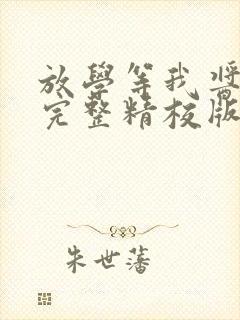 放學等我 酱
完整精校版
朱世藩